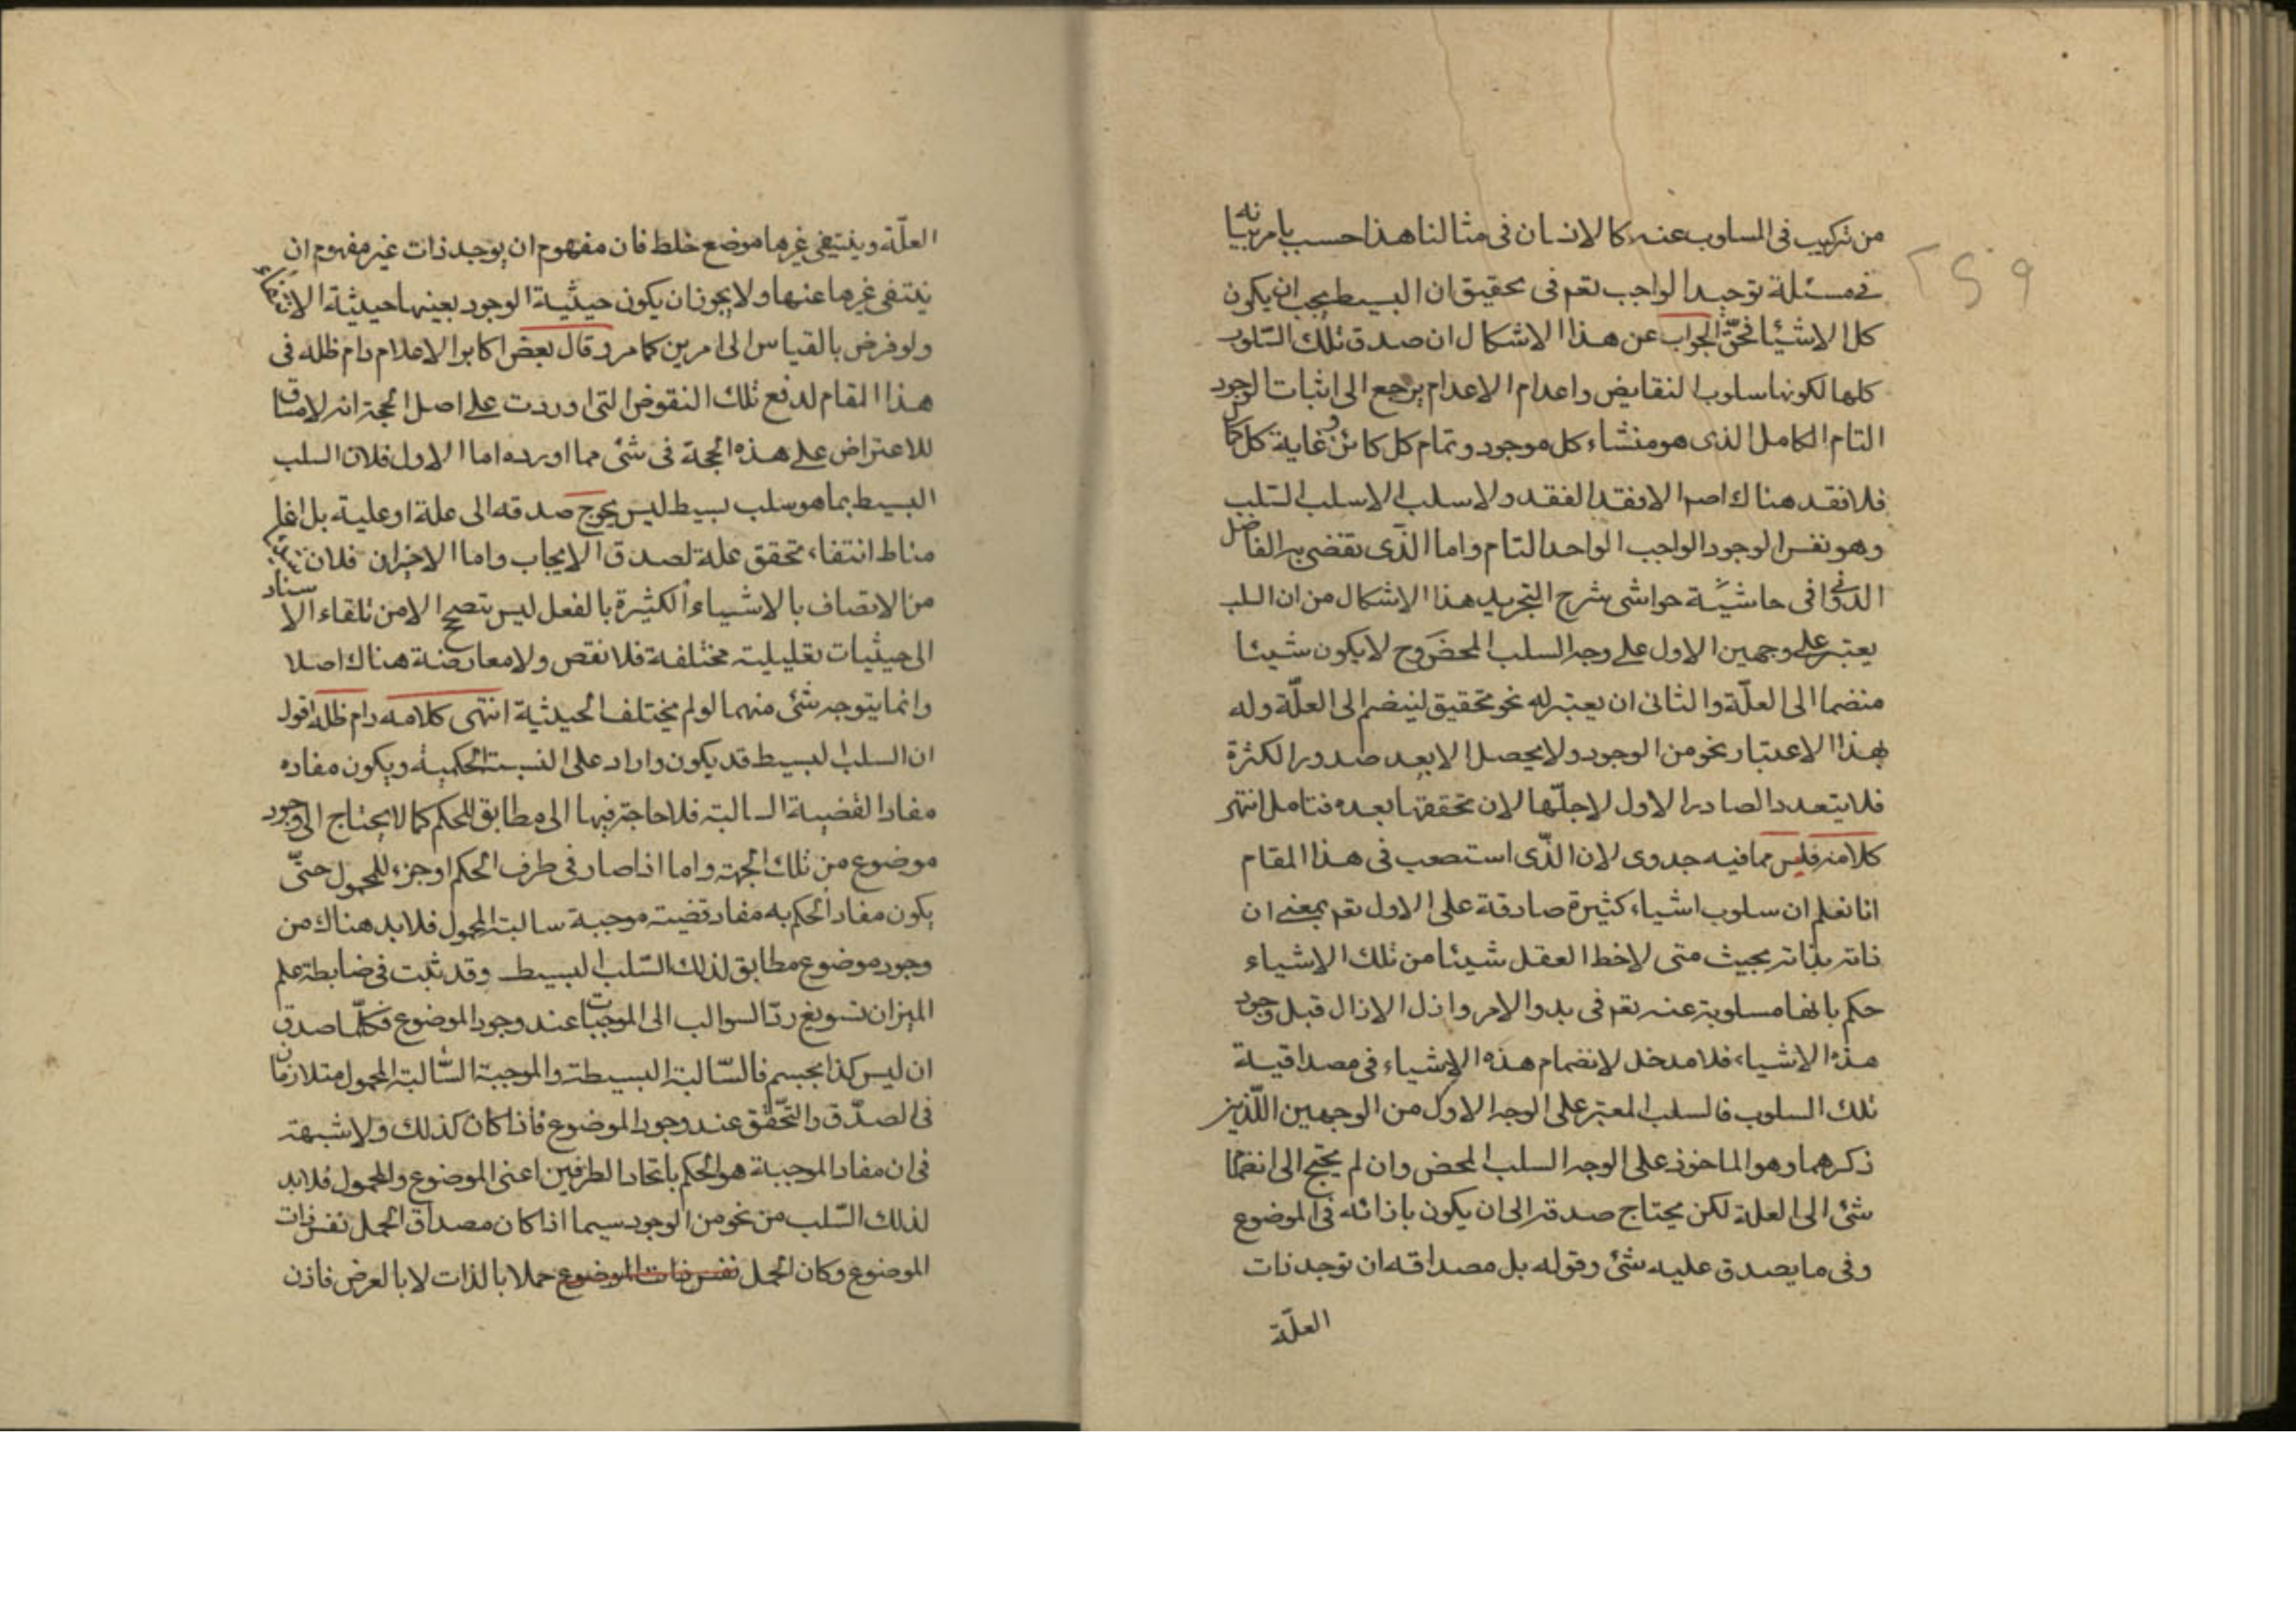 من تركيب فى المسلوب عنه كالانسان فى مثالنا هذا حسب ما مر بيانه
فى مسئلة توحيد الواجب تعم فى تحقيق ان البسيط يجب ان يكون
كل الاشيا فحقّ الجواب عن هذا الاشكال ان صدق تلك السلوب
كلها لكونها سلوب النقايض واعدام الاعدام يرجع الى اثبات الوجود
التام الكامل الذى هو منشاء كل موجود وتمام كل كائن وغاية كل كمال
فلا فقد هناك اصلا الا فقد الفقد ولا سلب الا سلب السّلب
وهو نفس الوجود الواجب الواحد التام واما الذّى تفصّى به الفاضل
الدوّانى فى حاشيّة حواشى شرح التجريد هذا الاشكال من ان السلب
يعتبر على وجهين الاول على وجه السلب المحض وح لا يكون شيئا
منضما الى العلّة والثانى ان يعتبر له نحو تحقيق لينضم الى العلّة وله
بهذا الاعتبار نحو من الوجود ولا يحصل الا بعد صدور الكثرة
فلا يتعدد الصادر الاول لاجلّها لان تحققها بعده فتامل انتهى
كلامه فليس مما فيه جدوى لان الذّى استصعب فى هذا المقام
انا نعلم ان سلوب اشياء كثيرة صادقة على الاول تعم بمعنى ان
ذاته بذاته بحيث متى لاحظ العقل شيئا من تلك الاشياء
حكم بانها مسلوبة عنه تعم فى بدو الامر وازل الازال قبل وجود
هذه الاشياء فلا مدخل لانضمام هذه الاشياء فى مصداقية
تلك السلوب فالسلب المعتبر على الوجه الاول من الوجهين اللّذين
ذكرهما وهو الماخوذ على الوجه السلب المحض وان لم يحتج الى انضمام
شئ الى العلة لكن يحتاج صدقه الى ان يكون بازائه فى الموضوع
وفى ما يصدق عليه شئ وقوله بل مصداقه ان توجد ذات
العلّة
العلّة وينتفى غيرها موضع خلط فان مفهوم ان يوجد ذات غير مفهوم ان
ينتفى غيرها عنها ولا يجوز ان يكون حيثية الوجود بعينها حيثية الانتفاء
ولو فرض بالقياس الى امرين كما مر وقال بعض اكابر الاعلام دام ظله فى
هذا المقام لدفع تلك النقوض التى اوردت على اصل الحجة انه لا مساق
للاعتراض على هذه الحجة فى شئ مما اورده اما الاول فلان السلب
البسيط بما هو سلب بسيط ليس يحوج صدقه الى علة او علية بل انما
مناط انتفاء تحقق علة لصدق الايجاب واما الاخيران فلان
من الاتصاف بالاشياء الكثيرة بالفعل ليس يتصحح الا من تلقاء الاستناد
الى حيثيات تعليليته مختلفة فلا نقص ولا معارضة هناك اصلا
وانما يتوجه شئ منهما لو لم يختلف الحيثية انتهى كلامه دام ظله اقول
ان السلب البسيط قد يكون وارد على النسبت الحكمية ويكون مفاده
مفاد القضية السالبة فلا حاجة فيها الى مطابق للحكم كما لا يحتاج الى وجود
موضوع من تلك الجهة واما اذا صار فى طرف الحكم او جزء للمحمول حتّى
يكون مفاد الحكم به مفاد قضية موجبة سالبة المحمول فلا بد هناك من
وجود موضوع مطابق لذلك السّلب البسيط وقد ثبت فى ضابطة علم
الميزان تسويغ ردّ السوالب الى الموجبات عند وجود الموضوع فكلّما صدق
ان ليس كذا بجسم فالسّالبة البسيطة والموجبة السّالبة المحمول متلازمان
فى الصدّق والتّحقّق عند وجود الموضوع فاذا كان كذلك ولا شبهة
فى ان مفاد الموجبة هو الحكم باتحاد الطرفين اعنى الموضوع والمحمول فلا بد
لذلك السّلب من نحو من الوجود سيما اذا كان مصداق الحمل نفس ذات
الموضوع وكان الحمل نفس ذات الموضوع حملا بالذات لا بالعرض فاذن